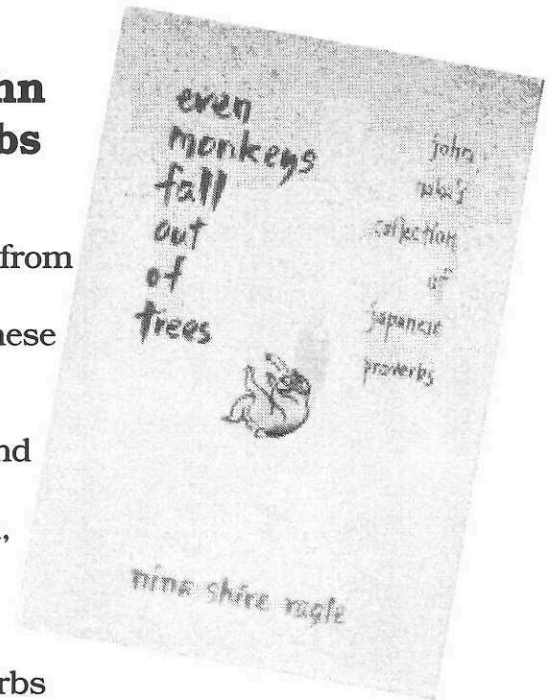 nn
bs
from
nese
nd
,
rbs
even
monkeys
fall
out
of
trees
john
collection
of
japanese
proverbs
nina shire ragle